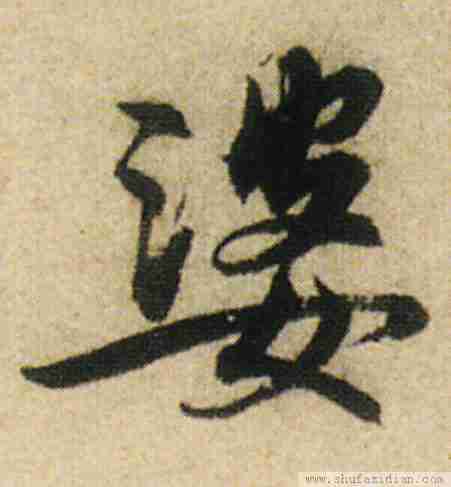 婆
www.shufazidian.com